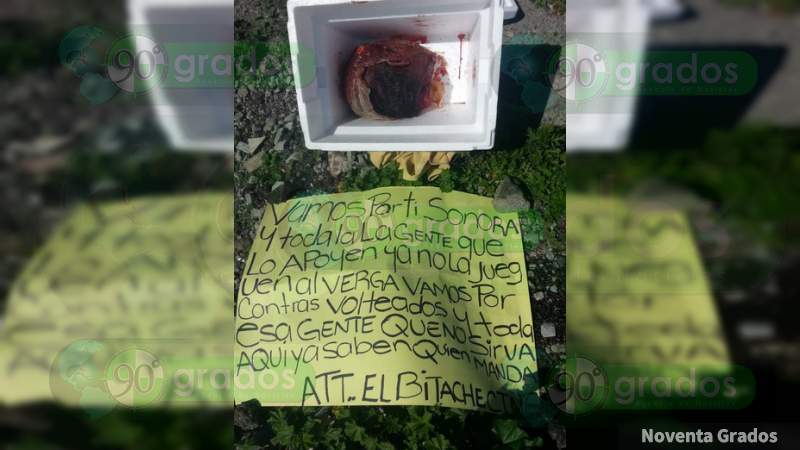 90° grados
90° grados
VAMOS Por ti SONORA
Y toda la LA GENTE que
LO APOYEN ya no la jueg
uen al VERGA VAMOS Por
Contras VOLTEADOS y toda
esa GENTE QUE NO SIRVA
AQUI ya saben Quien MANDA
ATT.. EL BITACHE
90° grados
90° grados
Noventa Grados